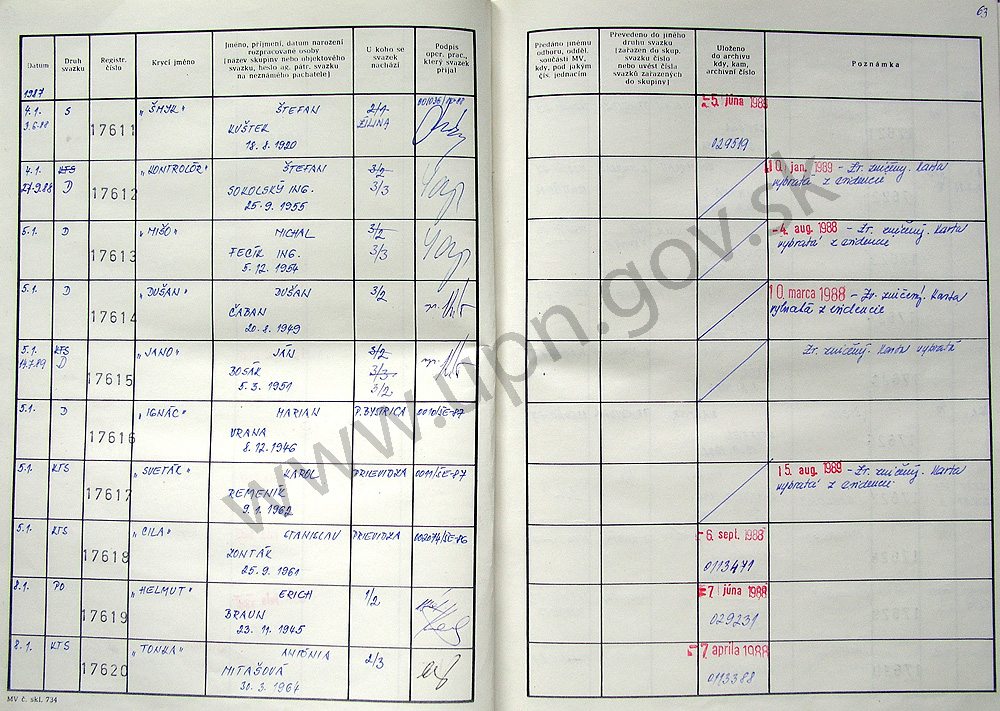 63
Datum
Druh svazku
Registr. číslo
Krycí jméno
Jméno, příjmení, datum narození
rozpracované osoby
(název skupiny nebo objektového
svazku, heslo ag. pátr. svazku
na neznámého pachatele)
U koho se
svazek
nachází
Podpis
oper. prac.,
který svazek
přijal
Předáno jinému
odboru, odděl.
součásti MV,
kdy, pod jakým
čís. jednacím
Převedeno do jiného
druhu svazku
(zařazen do skup.
svazku číslo
nebo uvést čísla
svazků zařazených
do skupiny)
Uloženo
do archivu
kdy, kam,
archivní číslo
Poznámka
1987
4.1. S 17611 "ŠMYK" ŠTEFAN 2/1
KUŠTEK ŽILINA
18. 8. 1920
-5. júna 1989
029519
4.1. KTS 17612 "KONTROLÓR" ŠTEFAN 3/2
27.9.88 D SOKOLSKÝ ING. 3/3
25. 9. 1955
10. jan. 1989 - Zr. zničený. Karta
vybratá z evidencie
5.1. D 17613 "MIŠO" MICHAL 3/2
FECÍK ING. 3/3
5. 12. 1954
-4. aug. 1988 - Zr. zničený. Karta
vybratá z evidencie
5.1. D 17614 "DUŠAN" DUŠAN 3/2
ČABAN
20. 8. 1949
10. marca 1988 - Zr. zničený. Karta
vybratá z evidencie
5.1. KTS 17615 "JANO" JÁN 3/2
14.7.89 D BOSÁK 3/3
5. 3. 1951 3/2
Zr. zničený. Karta vybratá
5.1. D 17616 "IGNÁC" MARIAN P. BYSTRICA 0010/ŠE-87
VRANA
8. 12. 1946
5.1. KTS 17617 "SVETÁK" KAROL PRIEVIDZA 0011/ŠE-87
REMENÍK
9. 1. 1962
15. aug. 1989 - Zr. zničený. Karta
vybratá z evidencie
5.1. KTS 17618 "CILA" STANISLAV PRIEVIDZA 002074/ŠE-86
ZONTÁK
25. 9. 1961
-6. sept. 1988
0113471
8.1. PO 17619 "HELMUT" ERICH 1/2
BRAUN
23. 11. 1945
-7. júna 1988
029231
8.1. KTS 17620 "TONKA" ANTÓNIA 2/3
MITAŠOVÁ
30. 3. 1964
-7. apríla 1988
0113388
MV č. skl. 734
www.upn.gov.sk